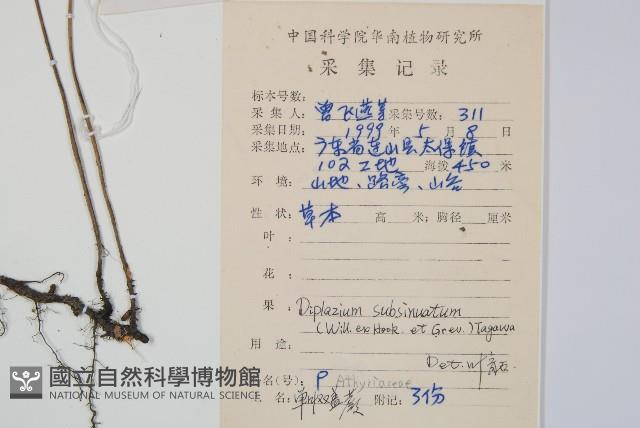 中国科学院华南植物研究所
采集记录
标本号数:
采集人: 曾飞燕等 采集号数: 311
采集日期: 1999年5月8日
采集地点: 广东省连山县太保镇
102工地 海拨450米
环境: 山地、路旁、山谷
性状: 草本 高 米; 胸径 厘米
叶:
花:
果: Diplazium subsinuatum
(Will. ex Hook. et Grev.) Tagawa
用途:
Det. 叶
名(号): P Athyriaceae
名: 单叶双盖蕨 附记: 3份
國立自然科學博物館
NATIONAL MUSEUM OF NATURAL SCIENCE